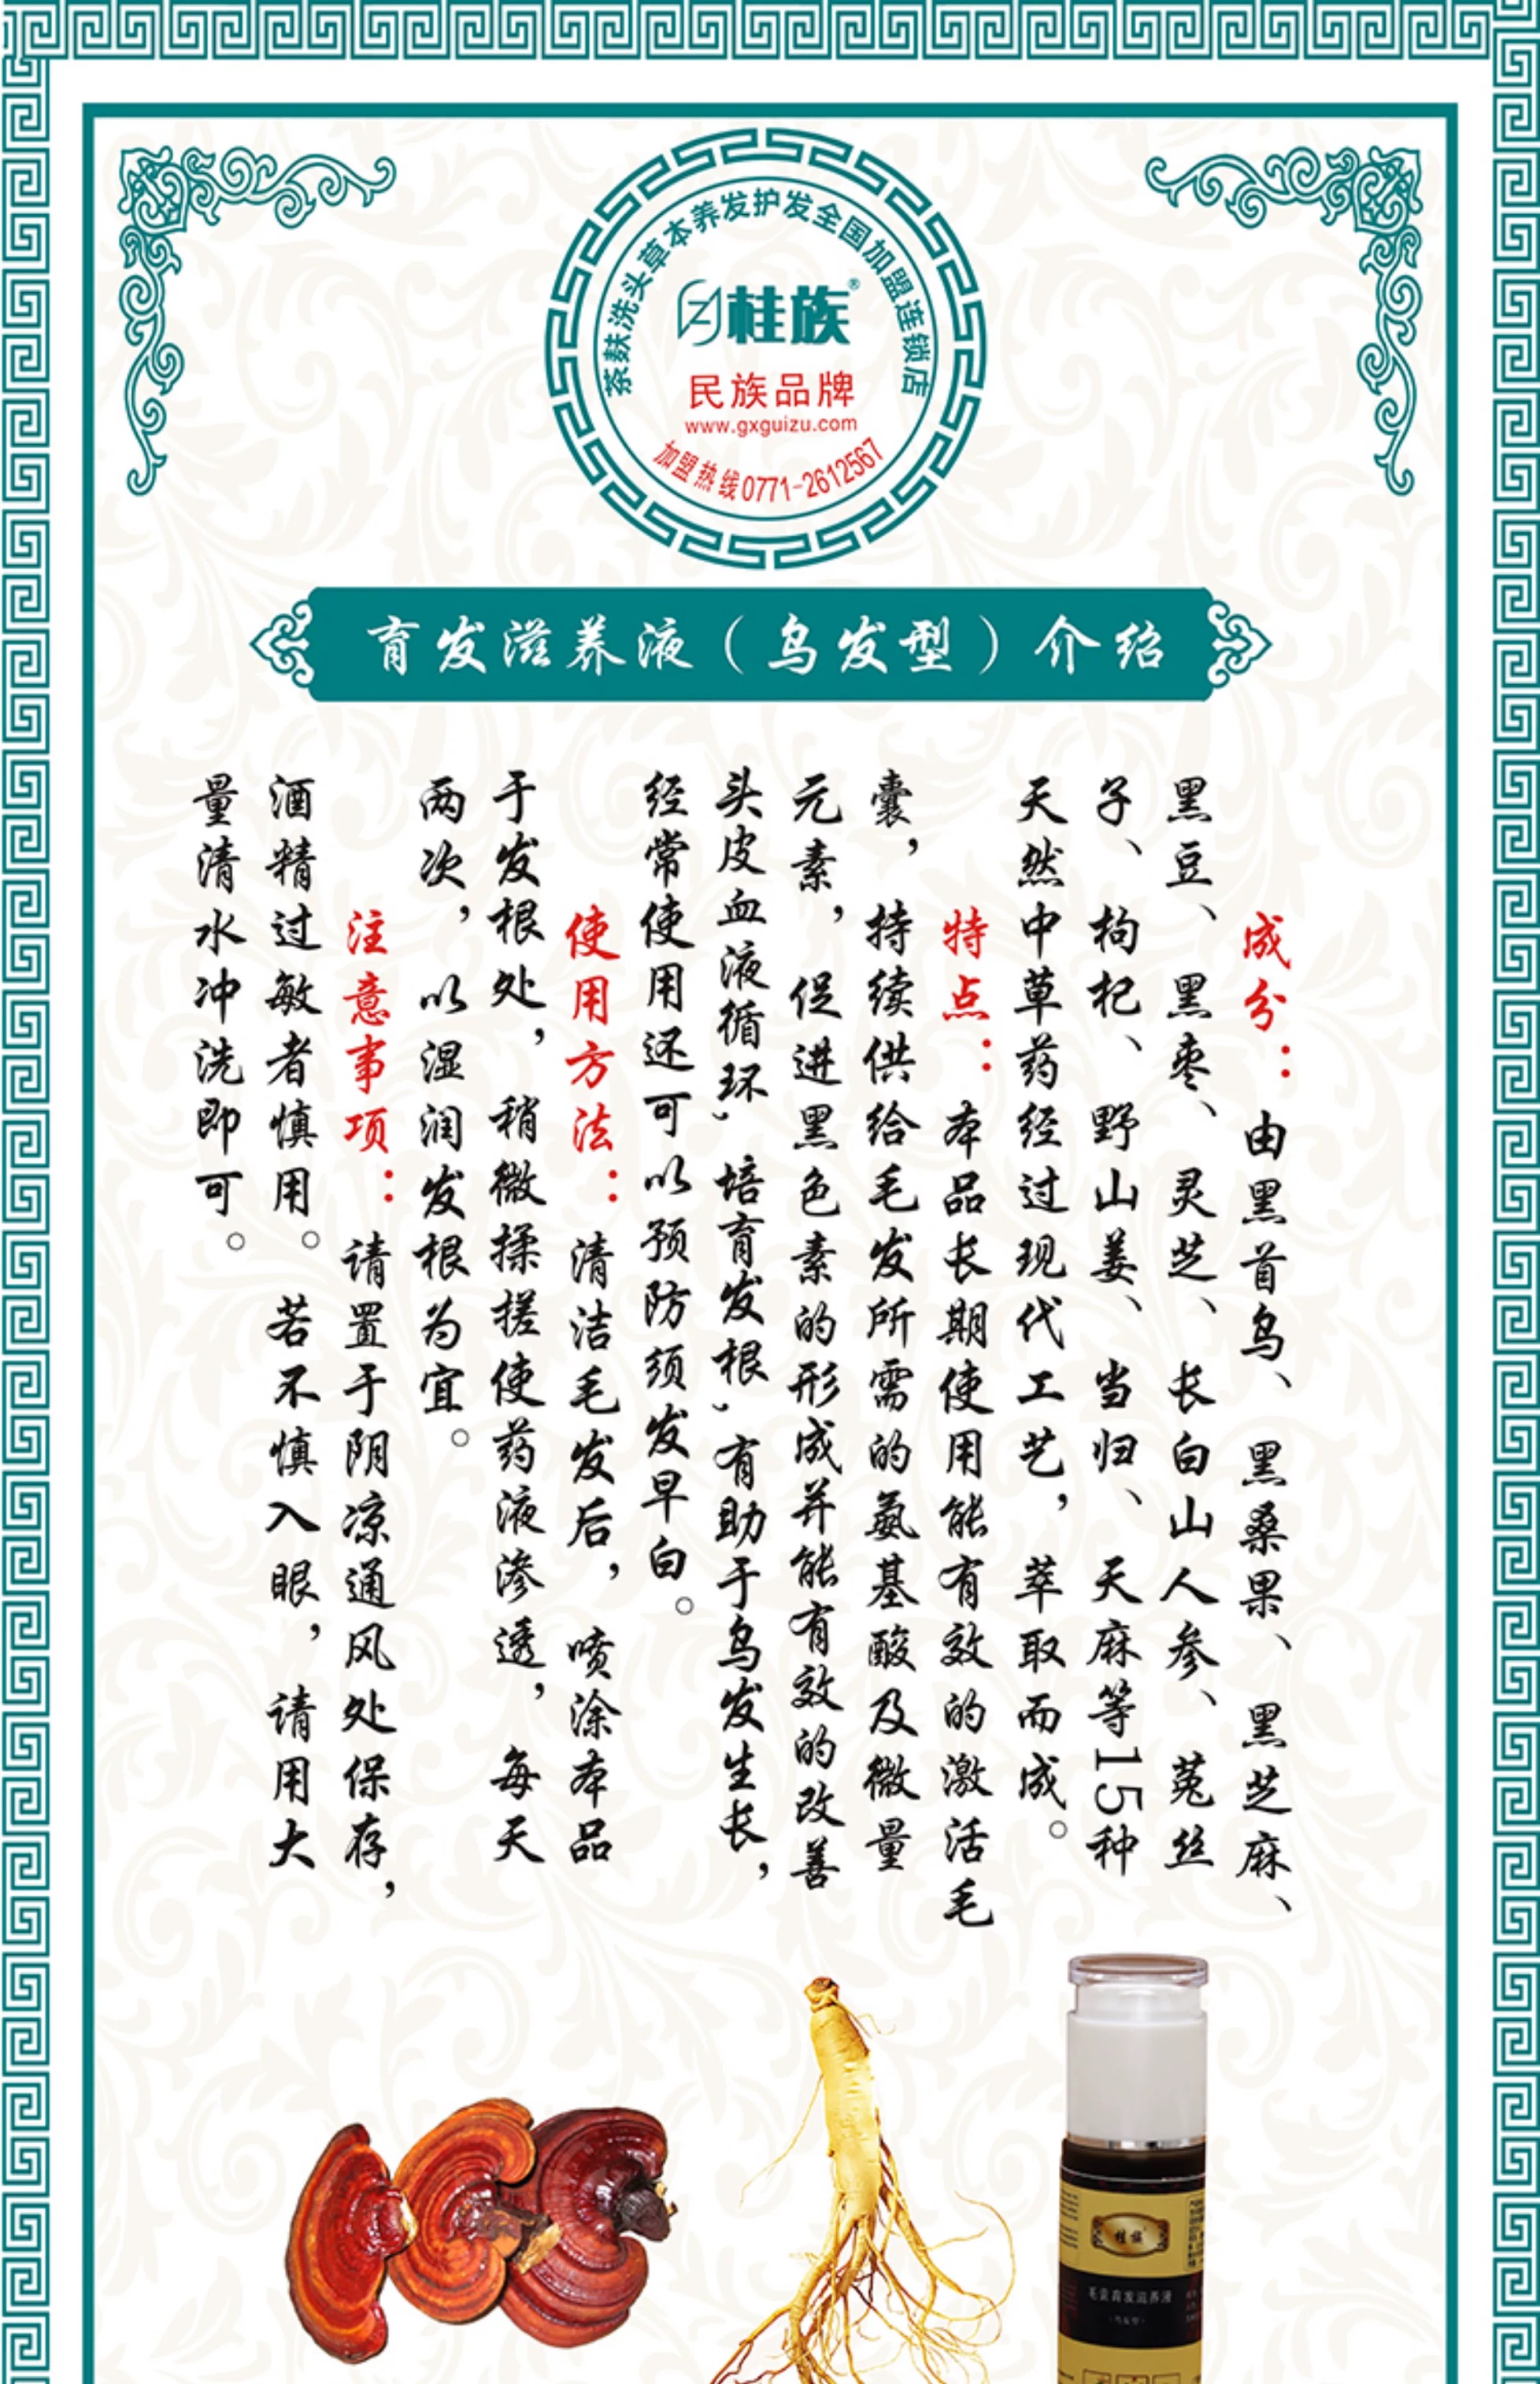 茶麸洗头草本养发护发全国加盟连锁店
桂族®
民族品牌
www.gxguizu.com
加盟热线0771-2612567
育发滋养液（乌发型）介绍
成分：由黑首乌、黑桑果、黑芝麻、
黑豆、黑枣、灵芝、长白山人参、菟丝
子、枸杞、野山姜、当归、天麻等15种
天然中草药经过现代工艺，萃取而成。
特点：本品长期使用能有效的激活毛
囊，持续供给毛发所需的氨基酸及微量
元素，促进黑色素的形成并能有效的改善
头皮血液循环，培育发根，有助于乌发生长，
经常使用还可以预防须发早白。
使用方法：清洁毛发后，喷涂本品
于发根处，稍微揉搓使药液渗透，每天
两次，以湿润发根为宜。
注意事项：请置于阴凉通风处保存，
酒精过敏者慎用。若不慎入眼，请用大
量清水冲洗即可。
桂族
毛囊育发滋养液
（乌发型）